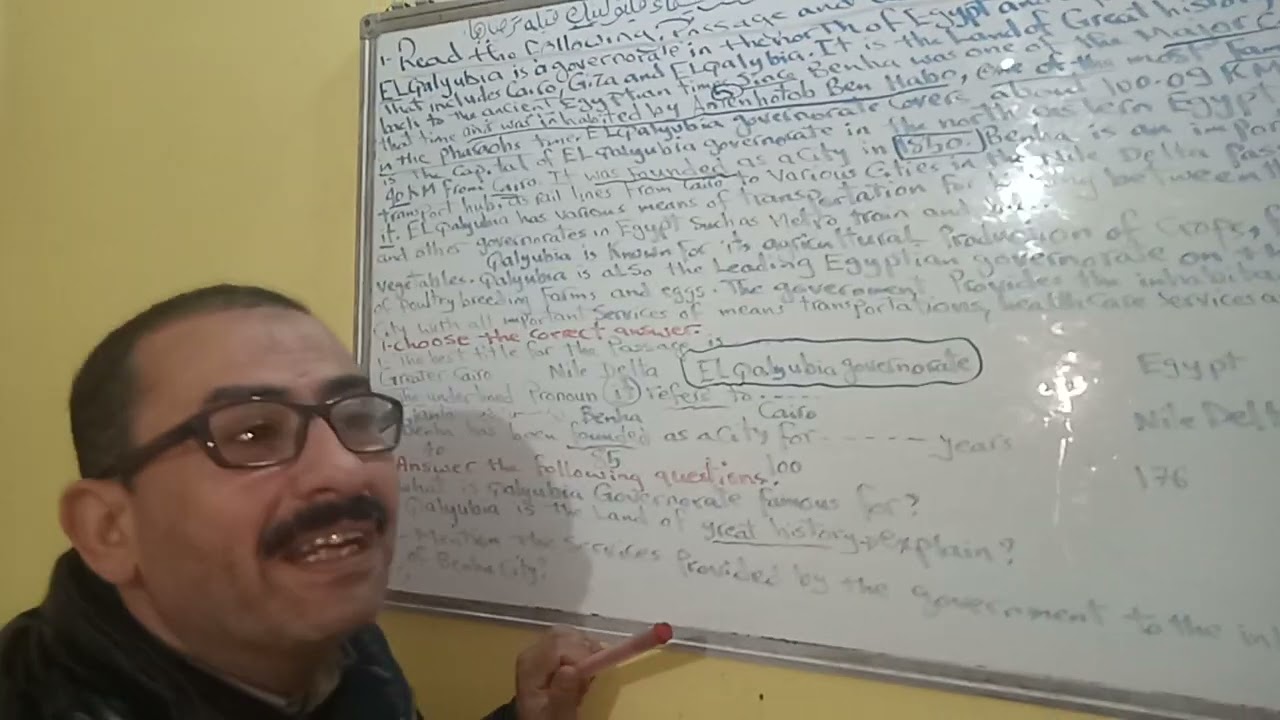 1- Read the following Passage and
EL Qalyubia is a governorate in the north of Egypt and
that includes Cairo, Giza and EL Qalybia. It is the Land of Great history
back to the ancient Egyptian times since Benha was one of the Major
that time and was inhabited by Amenhotob Ben Habo, one of the most fam
in the pharaohs time. EL Qalyubia governorate covers about 100.09 KM
is the Capital of EL Qalyubia governorate in the north eastern Egypt
40 KM from Cairo. It was founded as a City in 1850. Benha is an impor
transport hub, as rail lines from Cairo to various Cities in the Nile Delta Pass
it. EL Qalyubia has various means of transportation for between th
and other governorates in Egypt Such as Metro, train and
Qalyubia is Known for its agricultural Production of Crops, f
vegetables. Qalyubia is also the Leading Egyptian governorate on th
of Poultry breeding farms and eggs. The government Provides the inhabita
City with all important Services of means transportations, healthcare services a
1-choose the correct answer.
1- The best title for the Passage is
Greater Cairo Nile Delta EL Qalyubia governorate Egypt
The underlined Pronoun (it) refers to.....
Benha Cairo Nile Delt
Benha has been founded as a City for ----- years
85 100 176
Answer the following questions.
What is Qalyubia Governorate famous for?
Qalyubia is the Land of great history explain?
Mention the Services Provided by the government to the in
of Benha City?